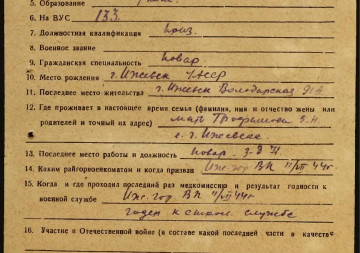 5. Образование
6. На ВУС 133
7. Должностная квалификация приз.
8. Военное звание
9. Гражданская специальность повар
10. Место рождения г. Ижевск УАССР
11. Последнее место жительства г. Ижевск Володарская
12. Где проживает в настоящее время семья (фамилия, имя и отчество жены или
родителей и точный их адрес) мать Трофимова
г. Ижевск
13. Последнее место работы и должность повар
14. Каким райгорвоенкоматом и когда призван Иж. гор ВК 11/VII 44г
15. Когда и где проходил последний раз медкомиссию и результат годности к
военной службе Иж. гор ВК 11/VII 44г
годен к строев. службе
16. Участие в Отечественной войне (в составе какой последней части в качестве